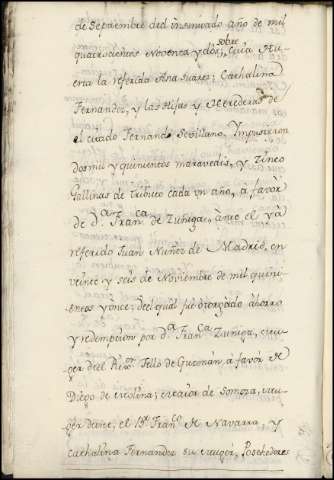 de Septiembre del insinuado año de mil
quatrocientos Noventa y dos, sobre
la referida Ana Suarez; Cathalina
Fernandez, y las Hijas y Herederas de
el citado Fernando Sevillano, Ympusieron
dosmil y quinientos maravedis, y Zinco
Gallinas de tributo cada un año, á favor
de Dª. Franca. de Zuñiga, ante el yá
referido Juan Nuñez de Madrid, en
veinte y seis de Noviembre de mil quini-
entos y once, del qual fue otorgado ahorro
y redempcion por dª. Franca. Zuñiga, mu-
ger del Tello de Guzmán, á favor de
Diego de Medina; de Somoza, mu-
ger de este; el Br. Franco. de Navarra, y
Cathalina Fernandez su muger, Poseedores